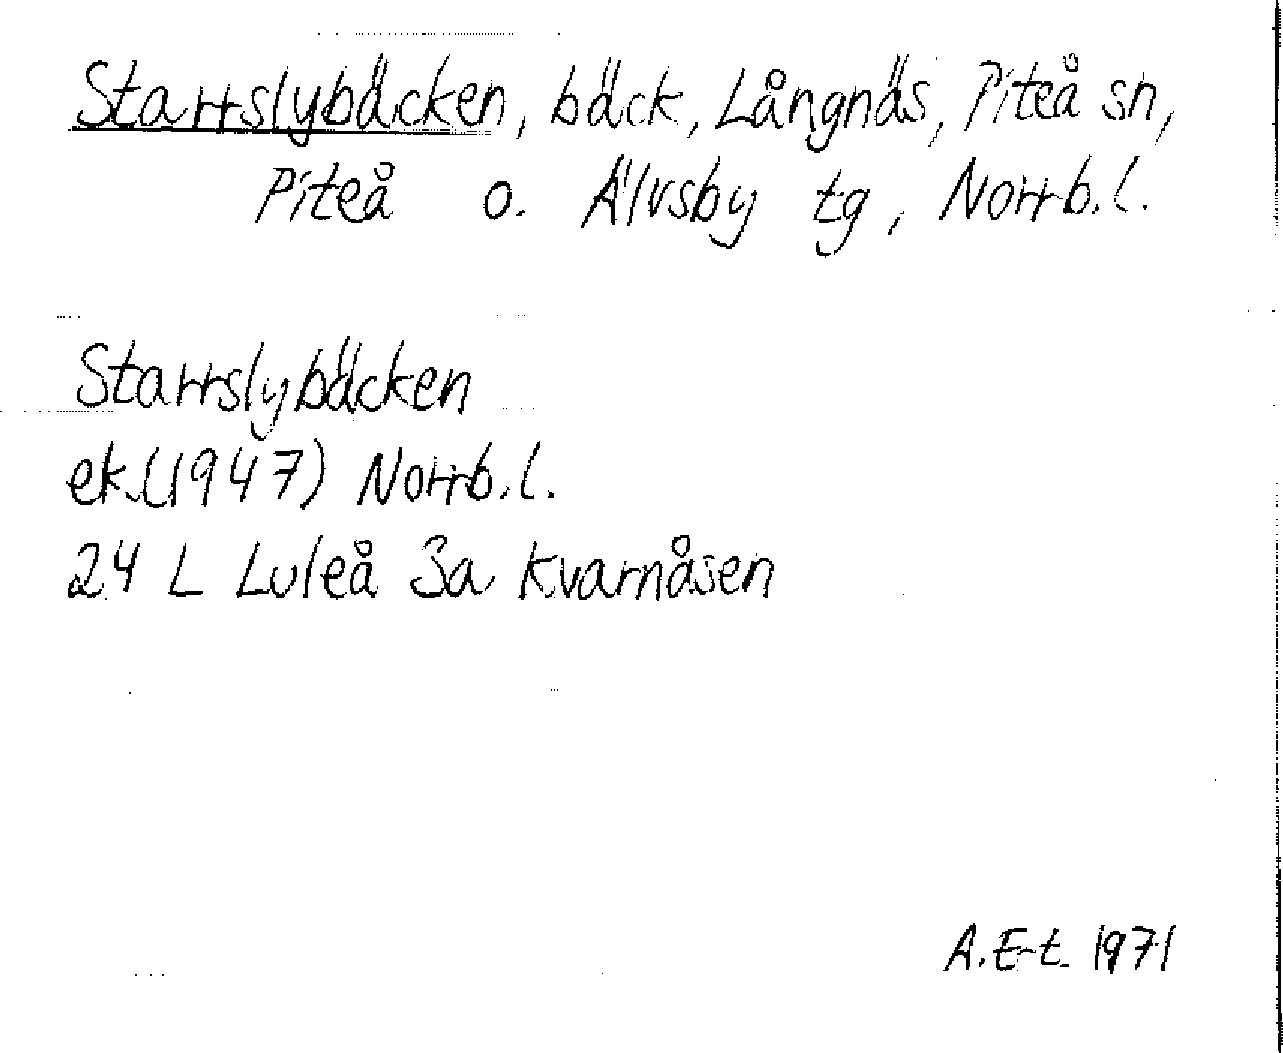 Starrslybäcken, bäck, Långnäs, Piteå sn,
Piteå o. Älvsby tg, Norrb.l.
Starrslybäcken
ek.(1947) Norrb.l.
24 L Luleå 3a Kvarnåsen
A.E-t 1971